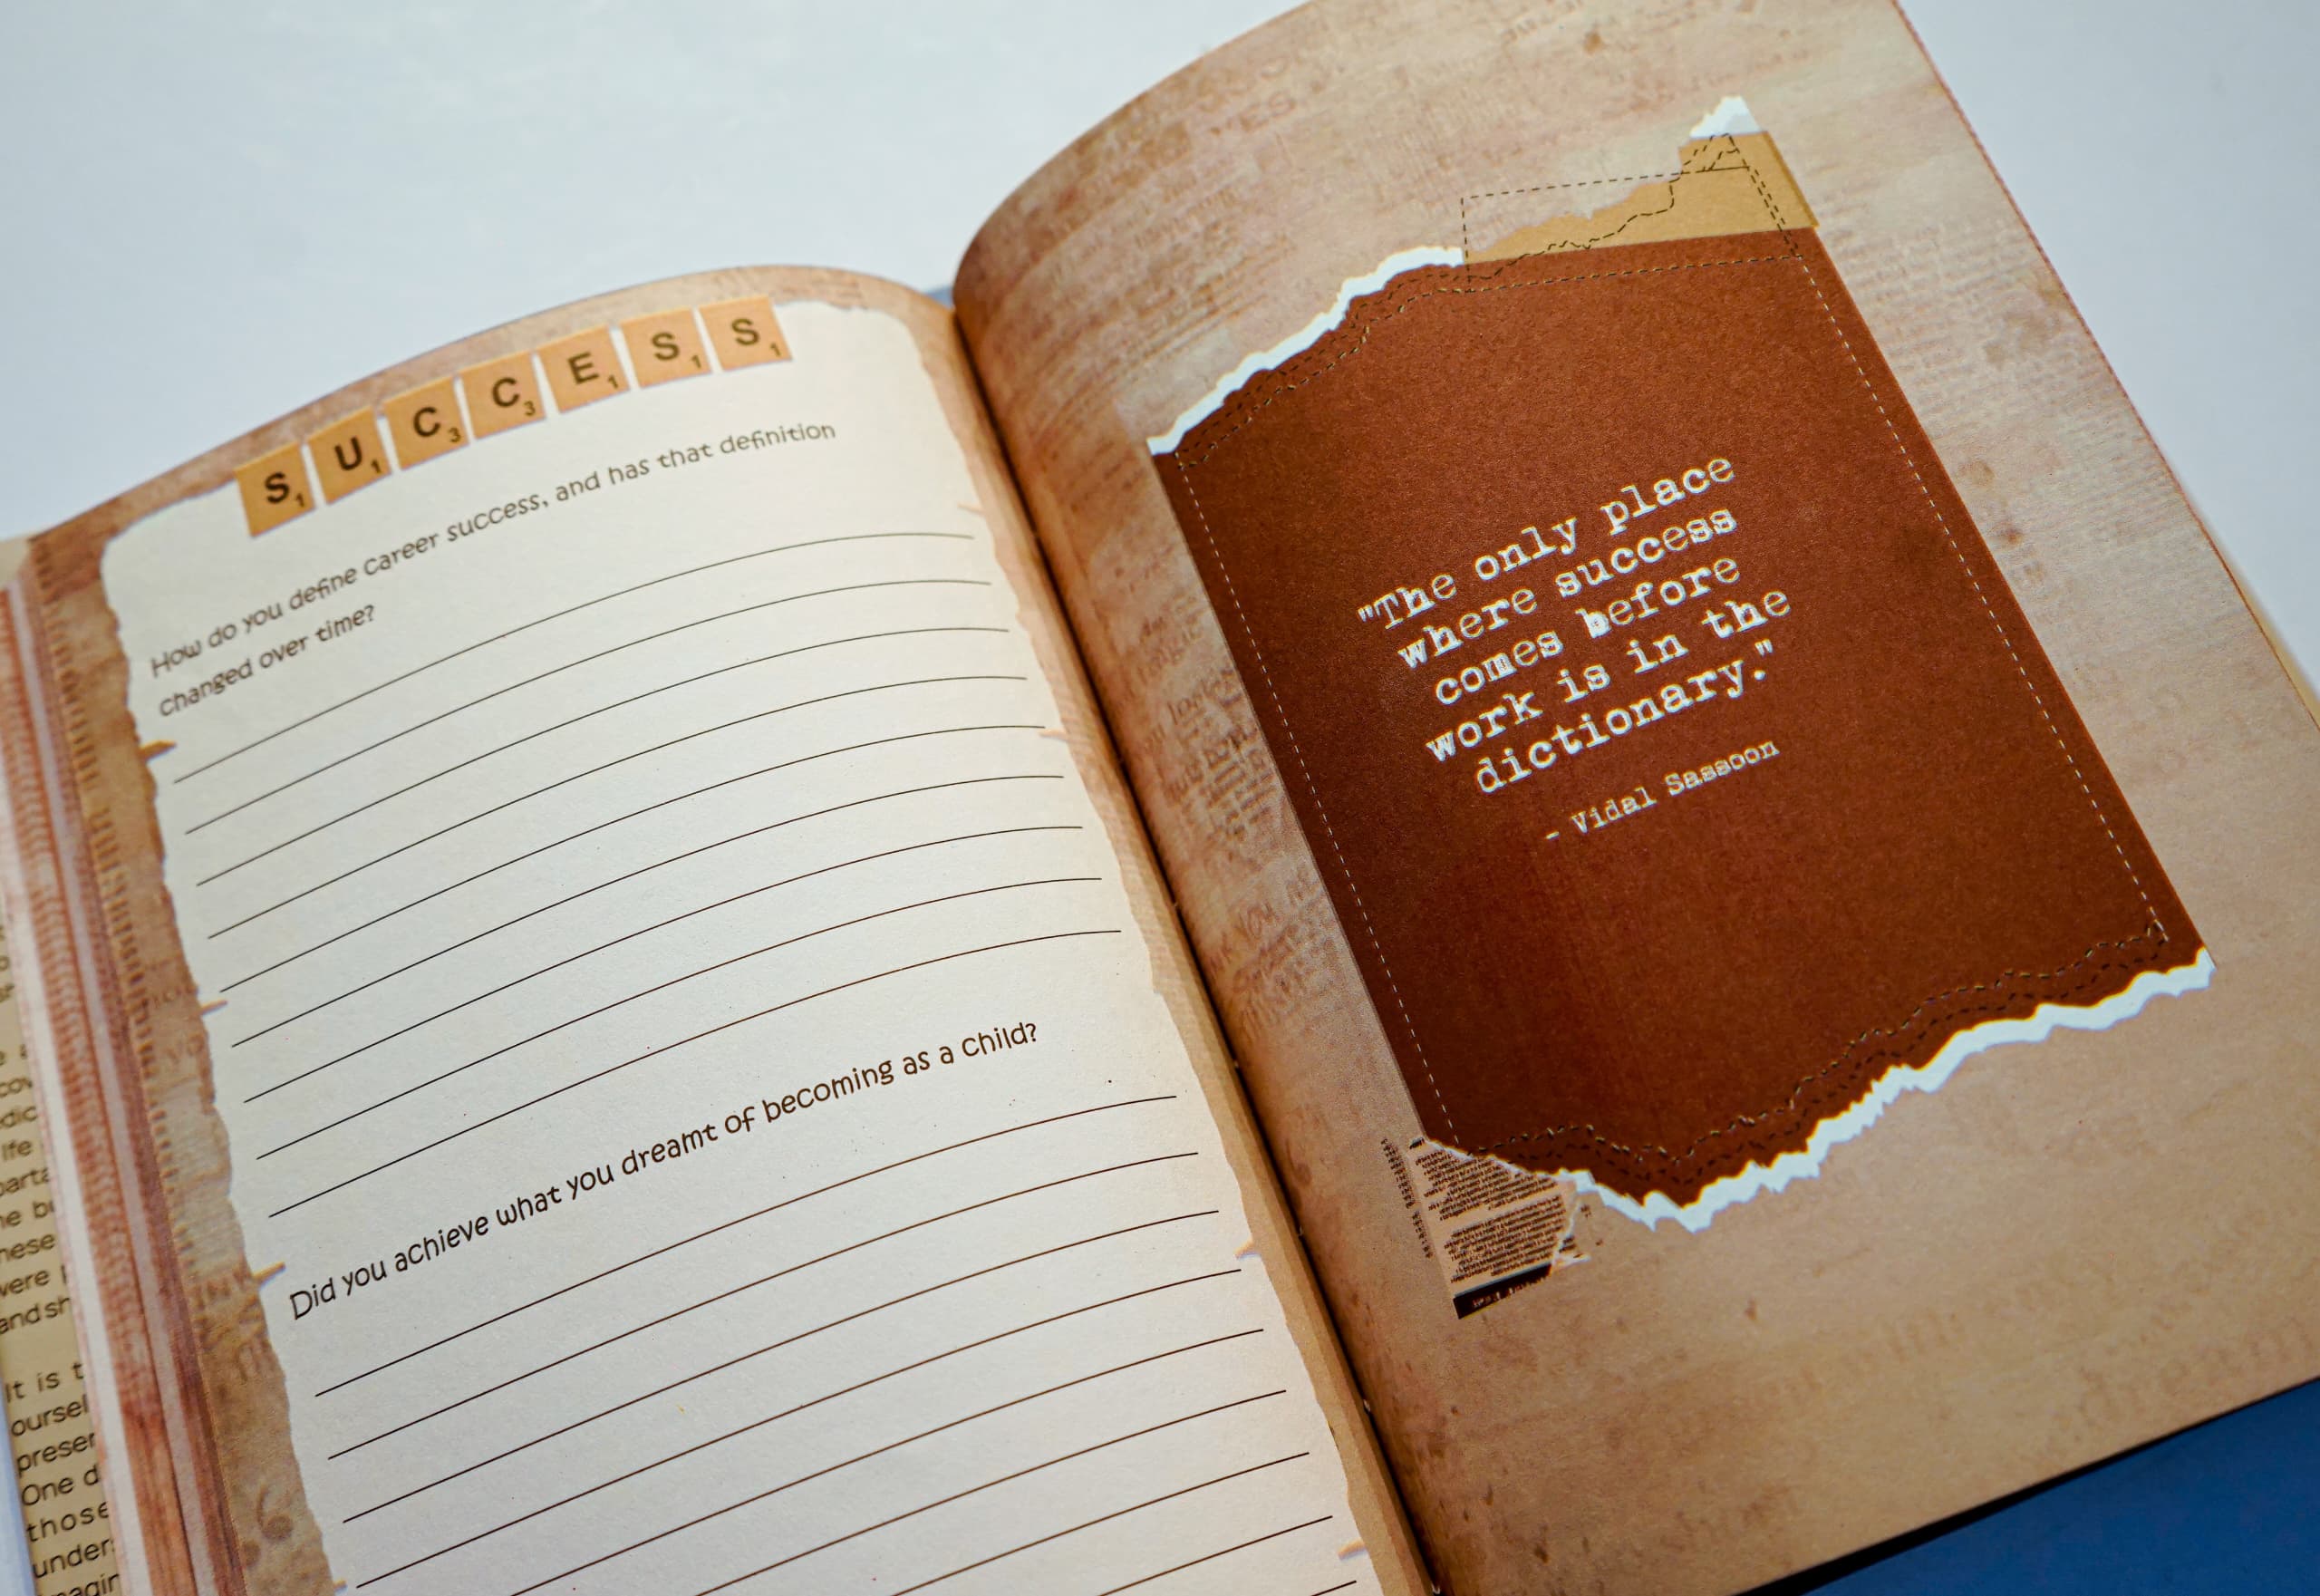 S1 U1 C3 C3 E1 S1 S1
How do you define career success, and has that definition
changed over time?
Did you achieve what you dreamt of becoming as a child?
"The only place
where success
comes before
work is in the
dictionary."
- Vidal Sassoon
It is
One
those